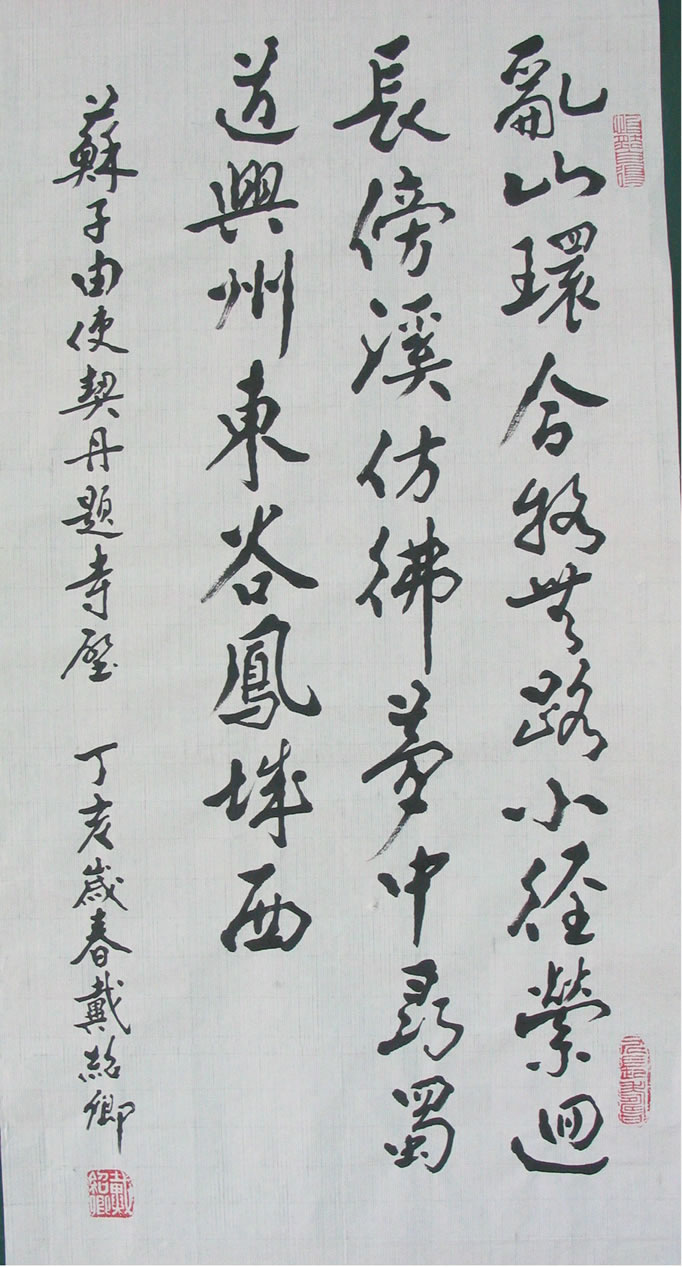 亂山環合疑無路小徑縈迴
長傍溪仿彿夢中尋蜀
道興州東谷鳳城西
蘇子由使契丹題寺壁 丁亥歲春戴紹卿
戴紹卿